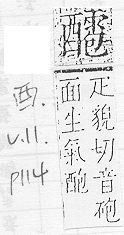 疋貌切音砲
面生氣
v.11.
p114